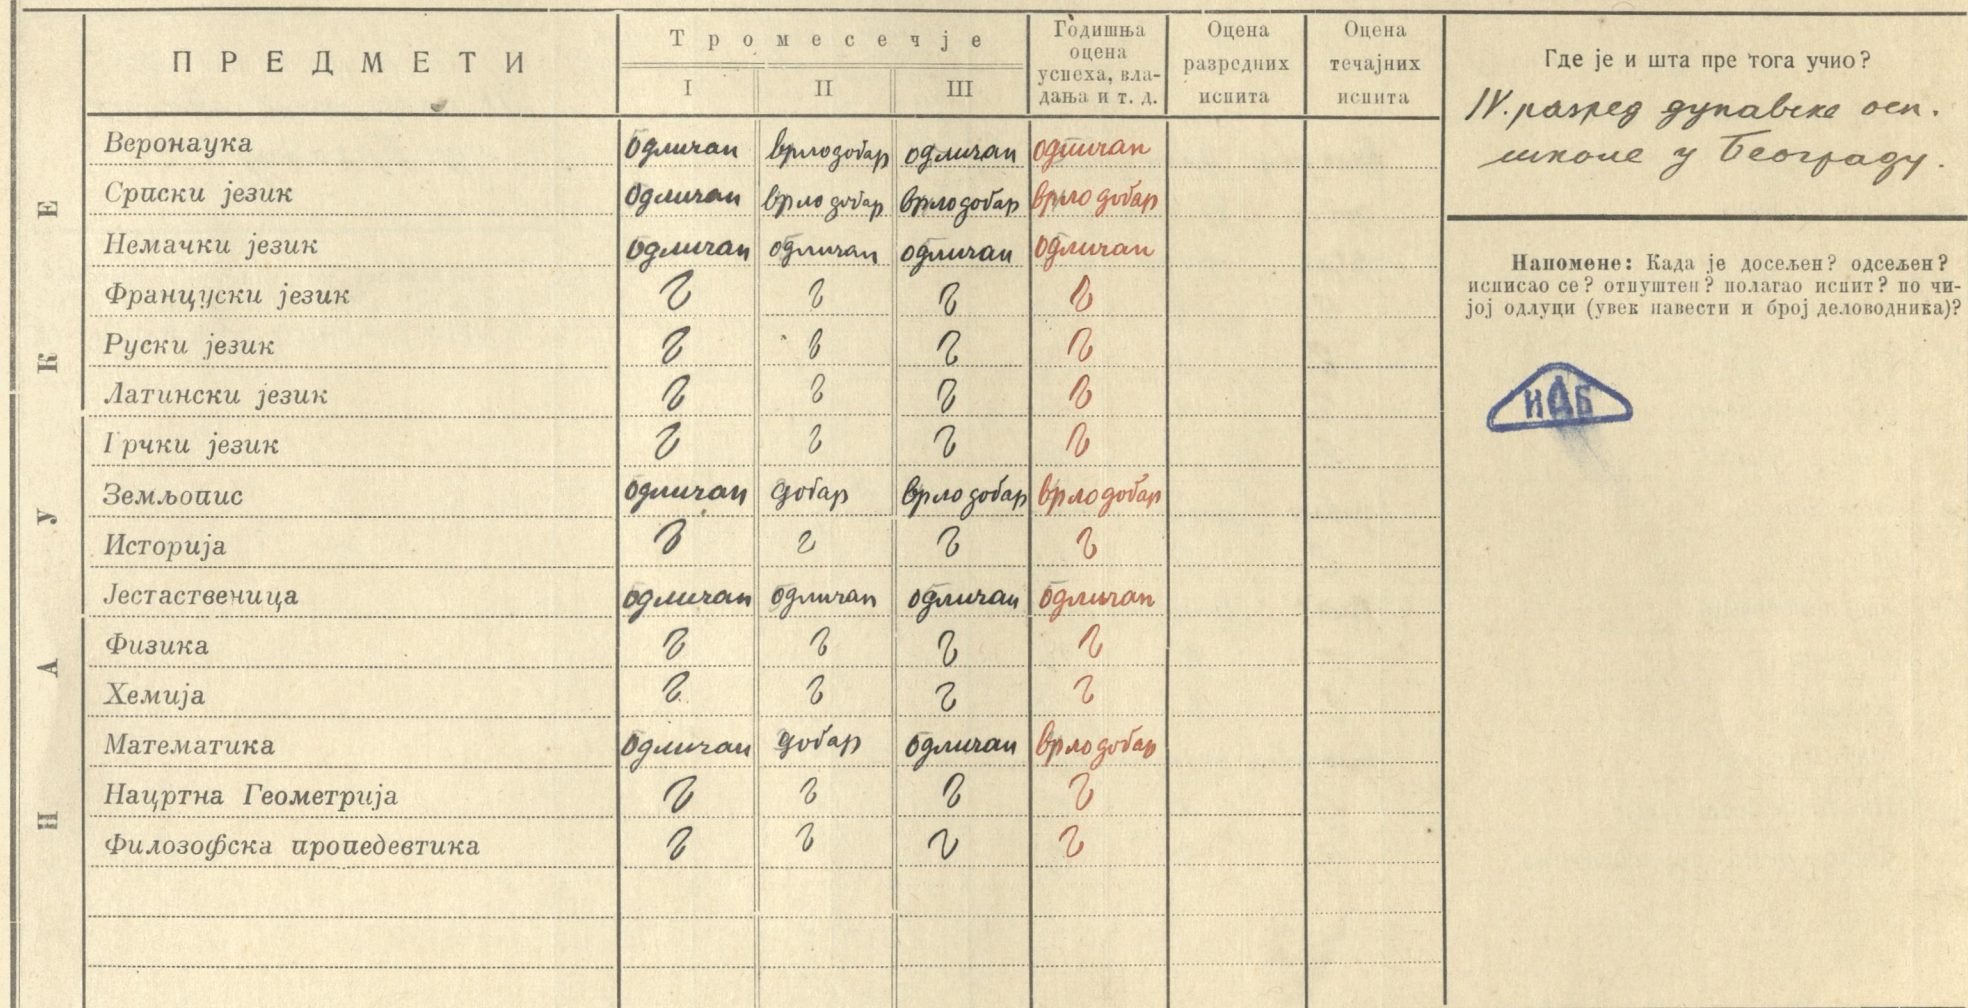 НАУКЕ
ПРЕДМЕТИ Тромесечје Годишња оцена успеха, вла- дања и т. д. Оцена разредних испита Оцена течајних испита
I II III
Веронаука одличан врлодобар одличан одличан
Српски језик одличан врло добар врлодобар врло добар
Немачки језик одличан одличан одличан одличан
Француски језик
Руски језик
Латински језик
Грчки језик
Земљопис одличан добар врлодобар врлодобар
Историја
Јестаственица одличан одличан одличан одличан
Физика
Хемија
Математика одличан добар одличан врлодобар
Нацртна Геометрија
Филозофска пропедевтика
Где је и шта пре тога учио?
IV. разред дунавске осн.
школе у Београду.
Напомене: Када је досељен? одсељен?
исписао се? отпуштен? полагао испит? по чи-
јој одлуци (увек навести и број деловодника)?
ИАБ